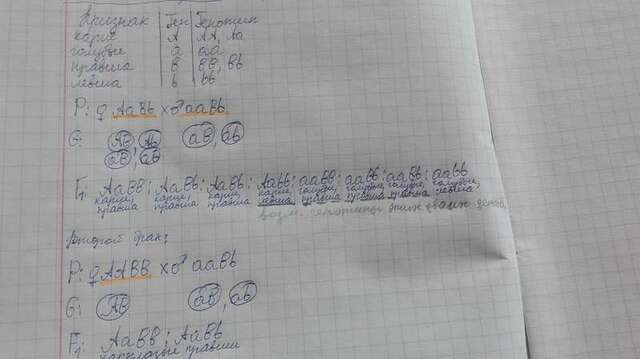 Признак Ген Генотип
карие A AA, Aa
голубые a aa
правша B BB, Bb
левша b bb
P: ♀ AaBb × ♂ aaBb
G: AB, Ab aB, ab
aB, ab
F₁: AaBB; AaBb; AaBb; Aabb; aaBB; aaBb; aaBb; aabb
карие, карие, карие, карие, голубые, голубые, голубые, голубые,
правша правша правша левша, правша правша правша левша
возм. генотипы этих двоих детей
Второй брак:
P: ♀ AABB × ♂ aaBb
G: AB aB, ab
F₁: AaBB; AaBb
кареглазые правши